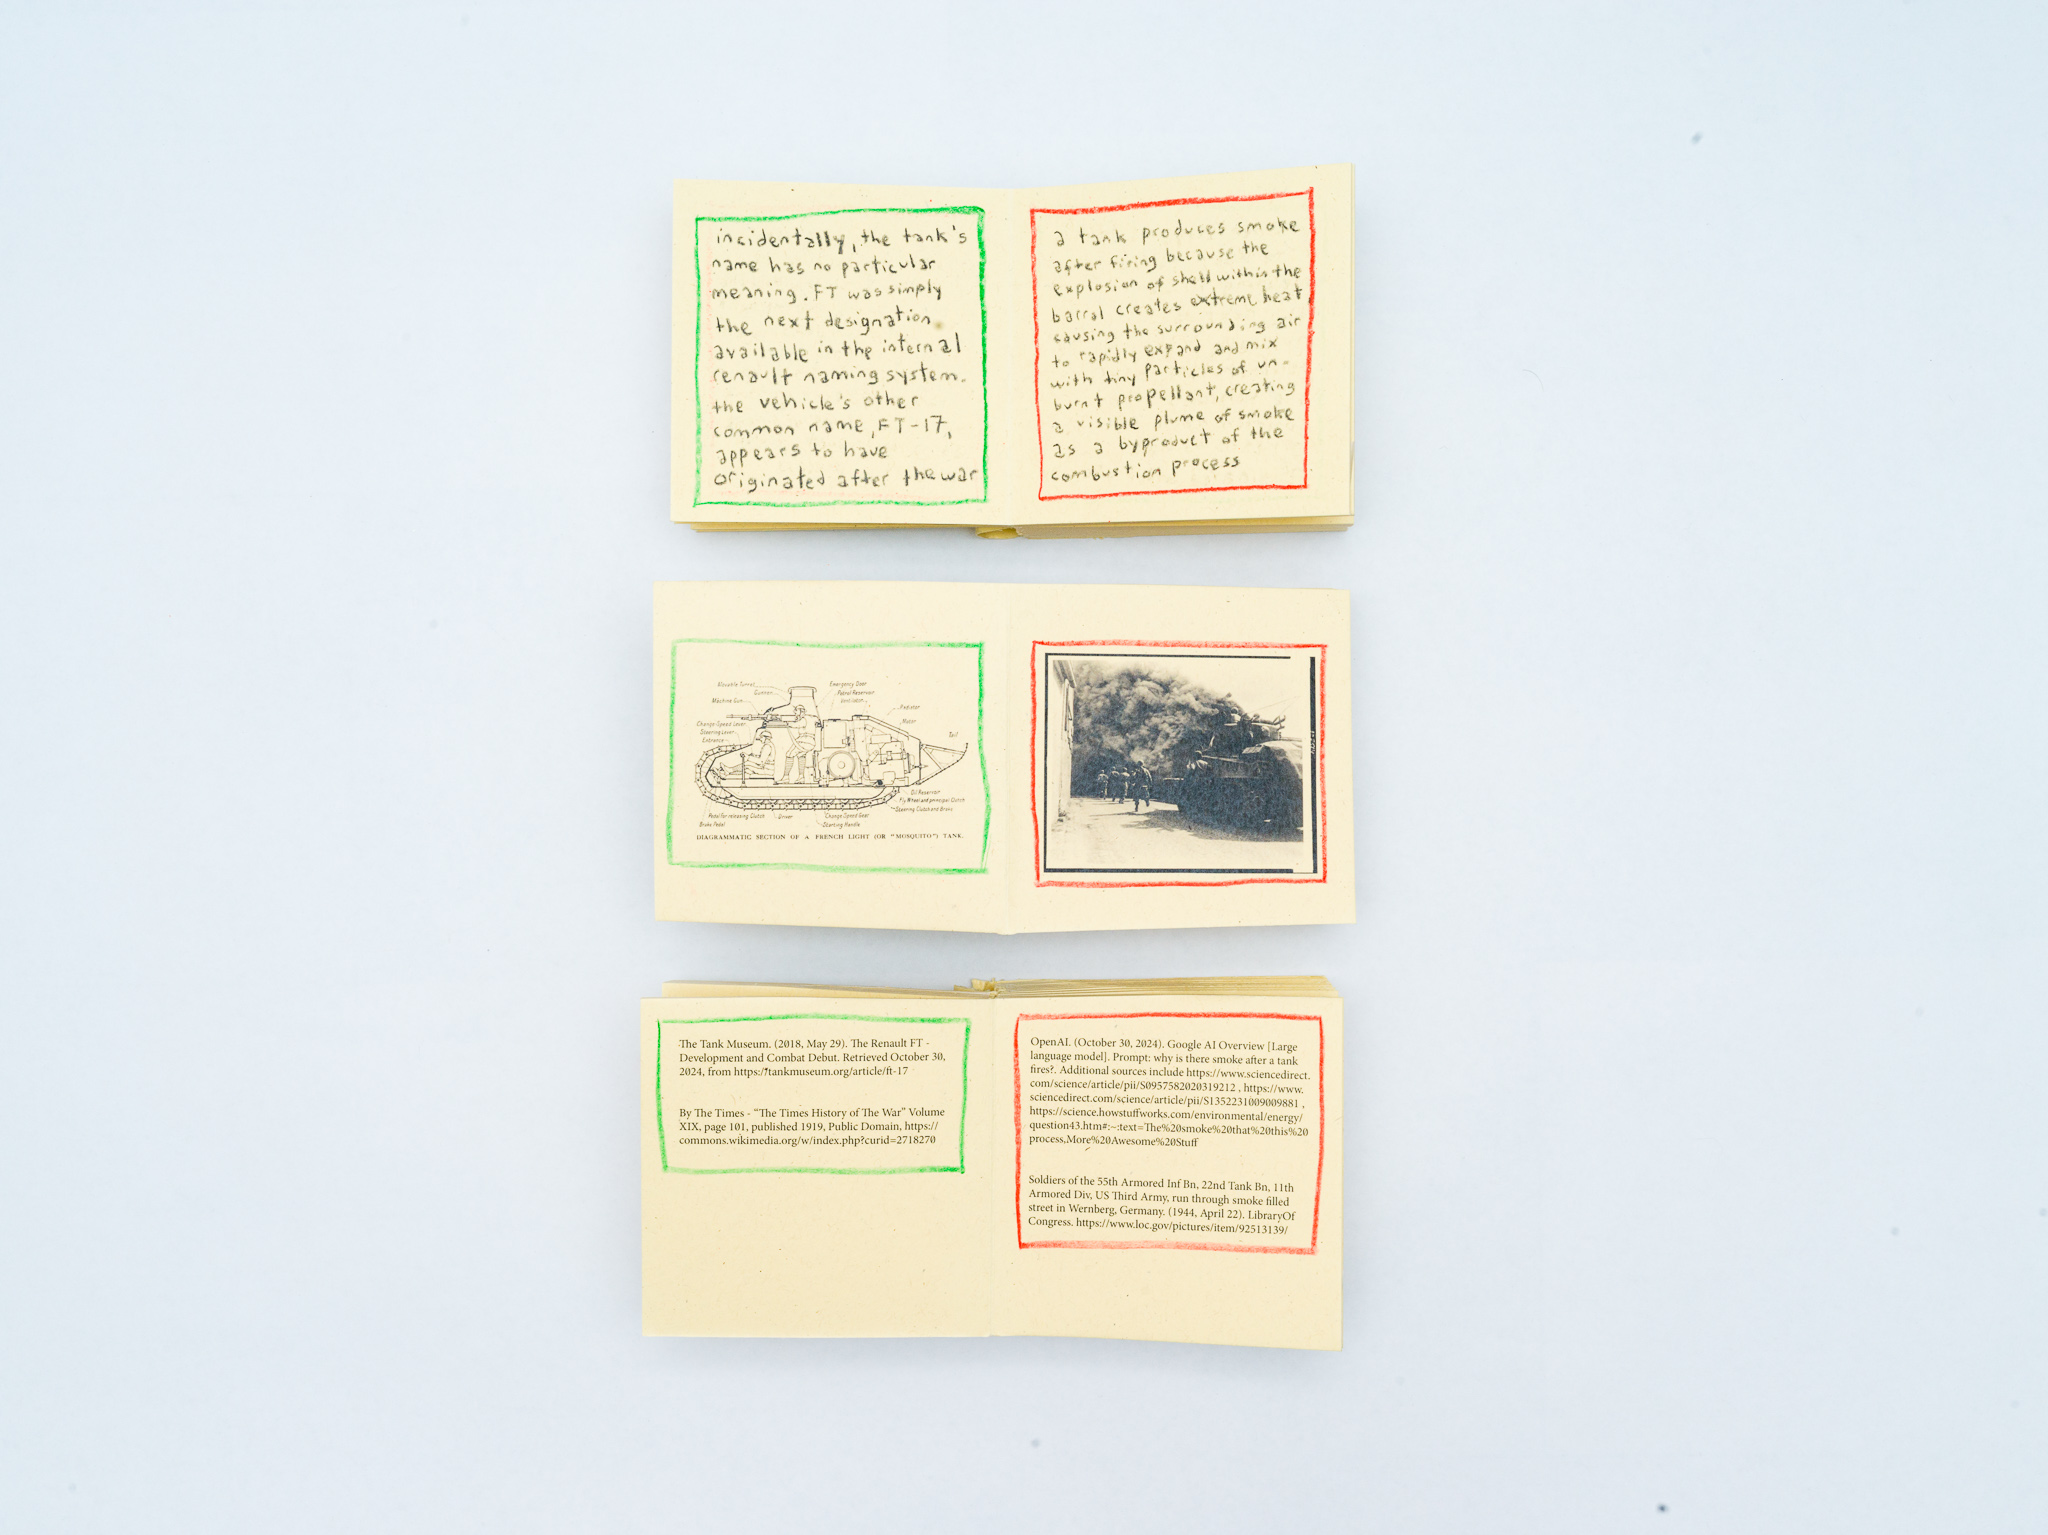 incidentally, the tank's
name has no particular
meaning. FT was simply
the next designation
available in the internal
renault naming system.
the vehicle's other
common name, FT-17,
appears to have
originated after the war
a tank produces smoke
after firing because the
explosion of shell within the
barral creates extreme heat
causing the surrounding air
to rapidly expand and mix
with tiny particles of un-
burnt propellant, creating
a visible plume of smoke
as a byproduct of the
combustion process
Movable Turret
Gunner
Machine Gun
Change-Speed Lever
Steering Lever
Entrance
Emergency Door
Petrol Reservoir
Ventilator
Radiator
Motor
Tail
Oil Reservoir
Fly Wheel and principal Clutch
Steering Clutch and Brake
Pedal for releasing Clutch
Brake Pedal
Driver
Change Speed Gear
Starting Handle
DIAGRAMMATIC SECTION OF A FRENCH LIGHT (OR "MOSQUITO") TANK.
The Tank Museum. (2018, May 29). The Renault FT -
Development and Combat Debut. Retrieved October 30,
2024, from https://tankmuseum.org/article/ft-17
By The Times - “The Times History of The War” Volume
XIX, page 101, published 1919, Public Domain, https://
commons.wikimedia.org/w/index.php?curid=2718270
OpenAI. (October 30, 2024). Google AI Overview [Large
language model]. Prompt: why is there smoke after a tank
fires?. Additional sources include https://www.sciencedirect.
com/science/article/pii/S0957582020319212 , https://www.
sciencedirect.com/science/article/pii/S1352231009009881 ,
https://science.howstuffworks.com/environmental/energy/
question43.htm#:~:text=The%20smoke%20that%20this%20
process,More%20Awesome%20Stuff
Soldiers of the 55th Armored Inf Bn, 22nd Tank Bn, 11th
Armored Div, US Third Army, run through smoke filled
street in Wernberg, Germany. (1944, April 22). LibraryOf
Congress. https://www.loc.gov/pictures/item/92513139/